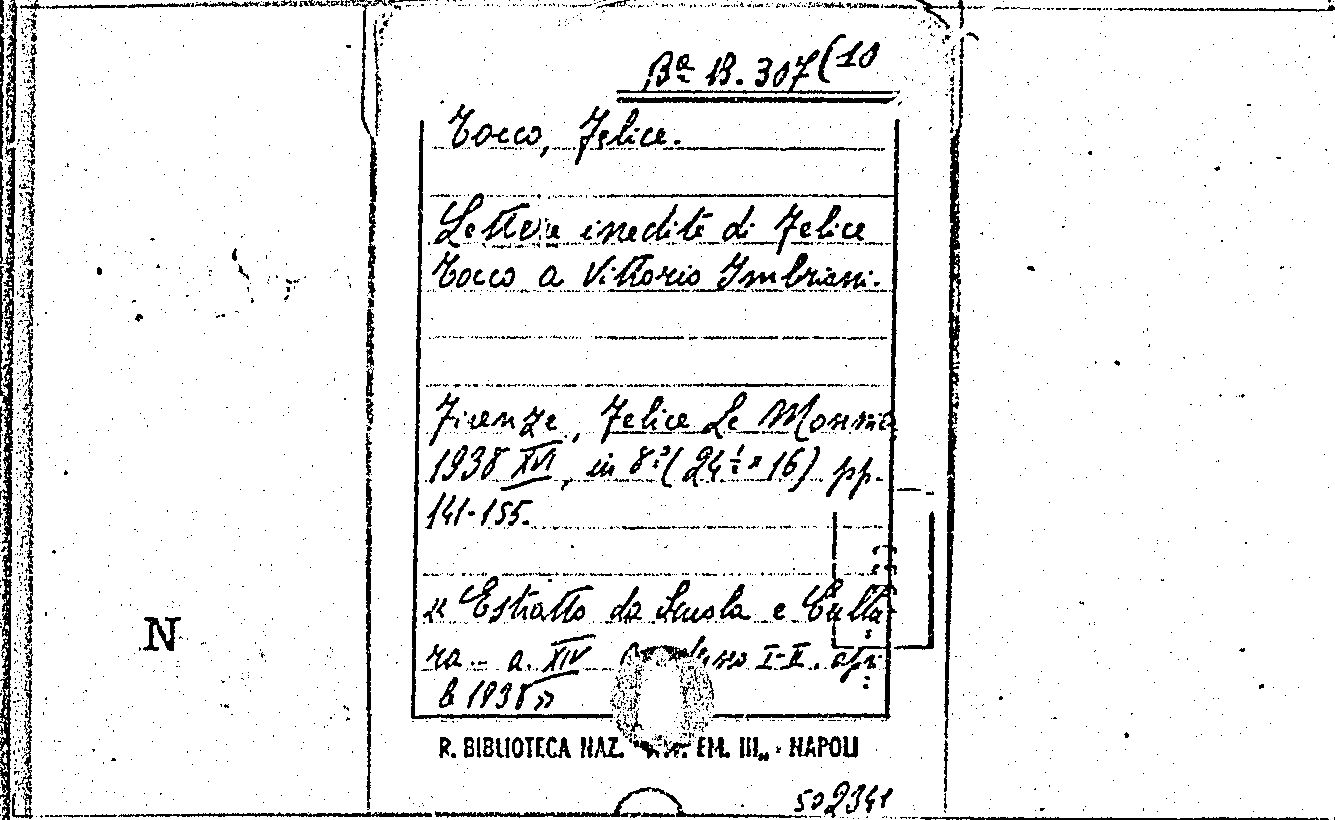 Bª B. 307(10
Tocco, Felice.
Lettere inedite di Felice
Tocco a Vittorio Imbriani.
Firenze, Felice Le Monnie
1938 XVI, in 8º (24½ × 16) pp.
141-155.
« Estratto da Scuola e Cultu-
ra - a. XIV I-II. apri
le 1938 »
N
R. BIBLIOTECA NAZ. EM. III„ - NAPOLI
502341